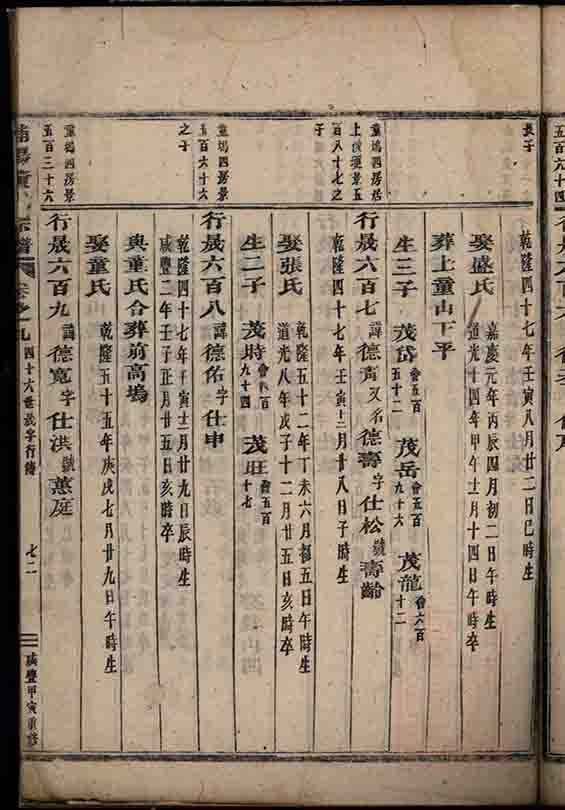 長子
乾隆四十七年壬寅八月廿二日巳時生
娶盛氏
嘉慶元年丙辰四月初二日午時生
道光十四年甲午十月十四日午時卒
葬上童山下平
生三子 茂岱 會五百五十二 茂岳 會五百九十六 茂龍 會六百十二
童塢四房居
上後運景五
百八十七之
子
行晟六百七 諱德 又名德壽字仕松號壽齡
乾隆四十七年壬寅十二月廿八日子時生
娶張氏
乾隆五十二年丁未六月初五日午時生
道光八年戊子十二月廿五日亥時卒
生二子 茂時 會四百九十四 茂旺 會五百十七
童塢四房景
五百六十六
之子
行晟六百八 諱德佑字仕申
乾隆四十七年壬寅十二月廿九日辰時生
咸豐二年壬子正月廿五日亥時卒
與童氏合葬前高塢
童塢四房景
五百三十六
行晟六百九 諱德寬字仕洪號蕙庭
娶童氏
乾隆五十五年庚戌七月廿九日午時生
宗譜 卷之九 四十六世晟字行傳 七二 咸豐甲寅重修